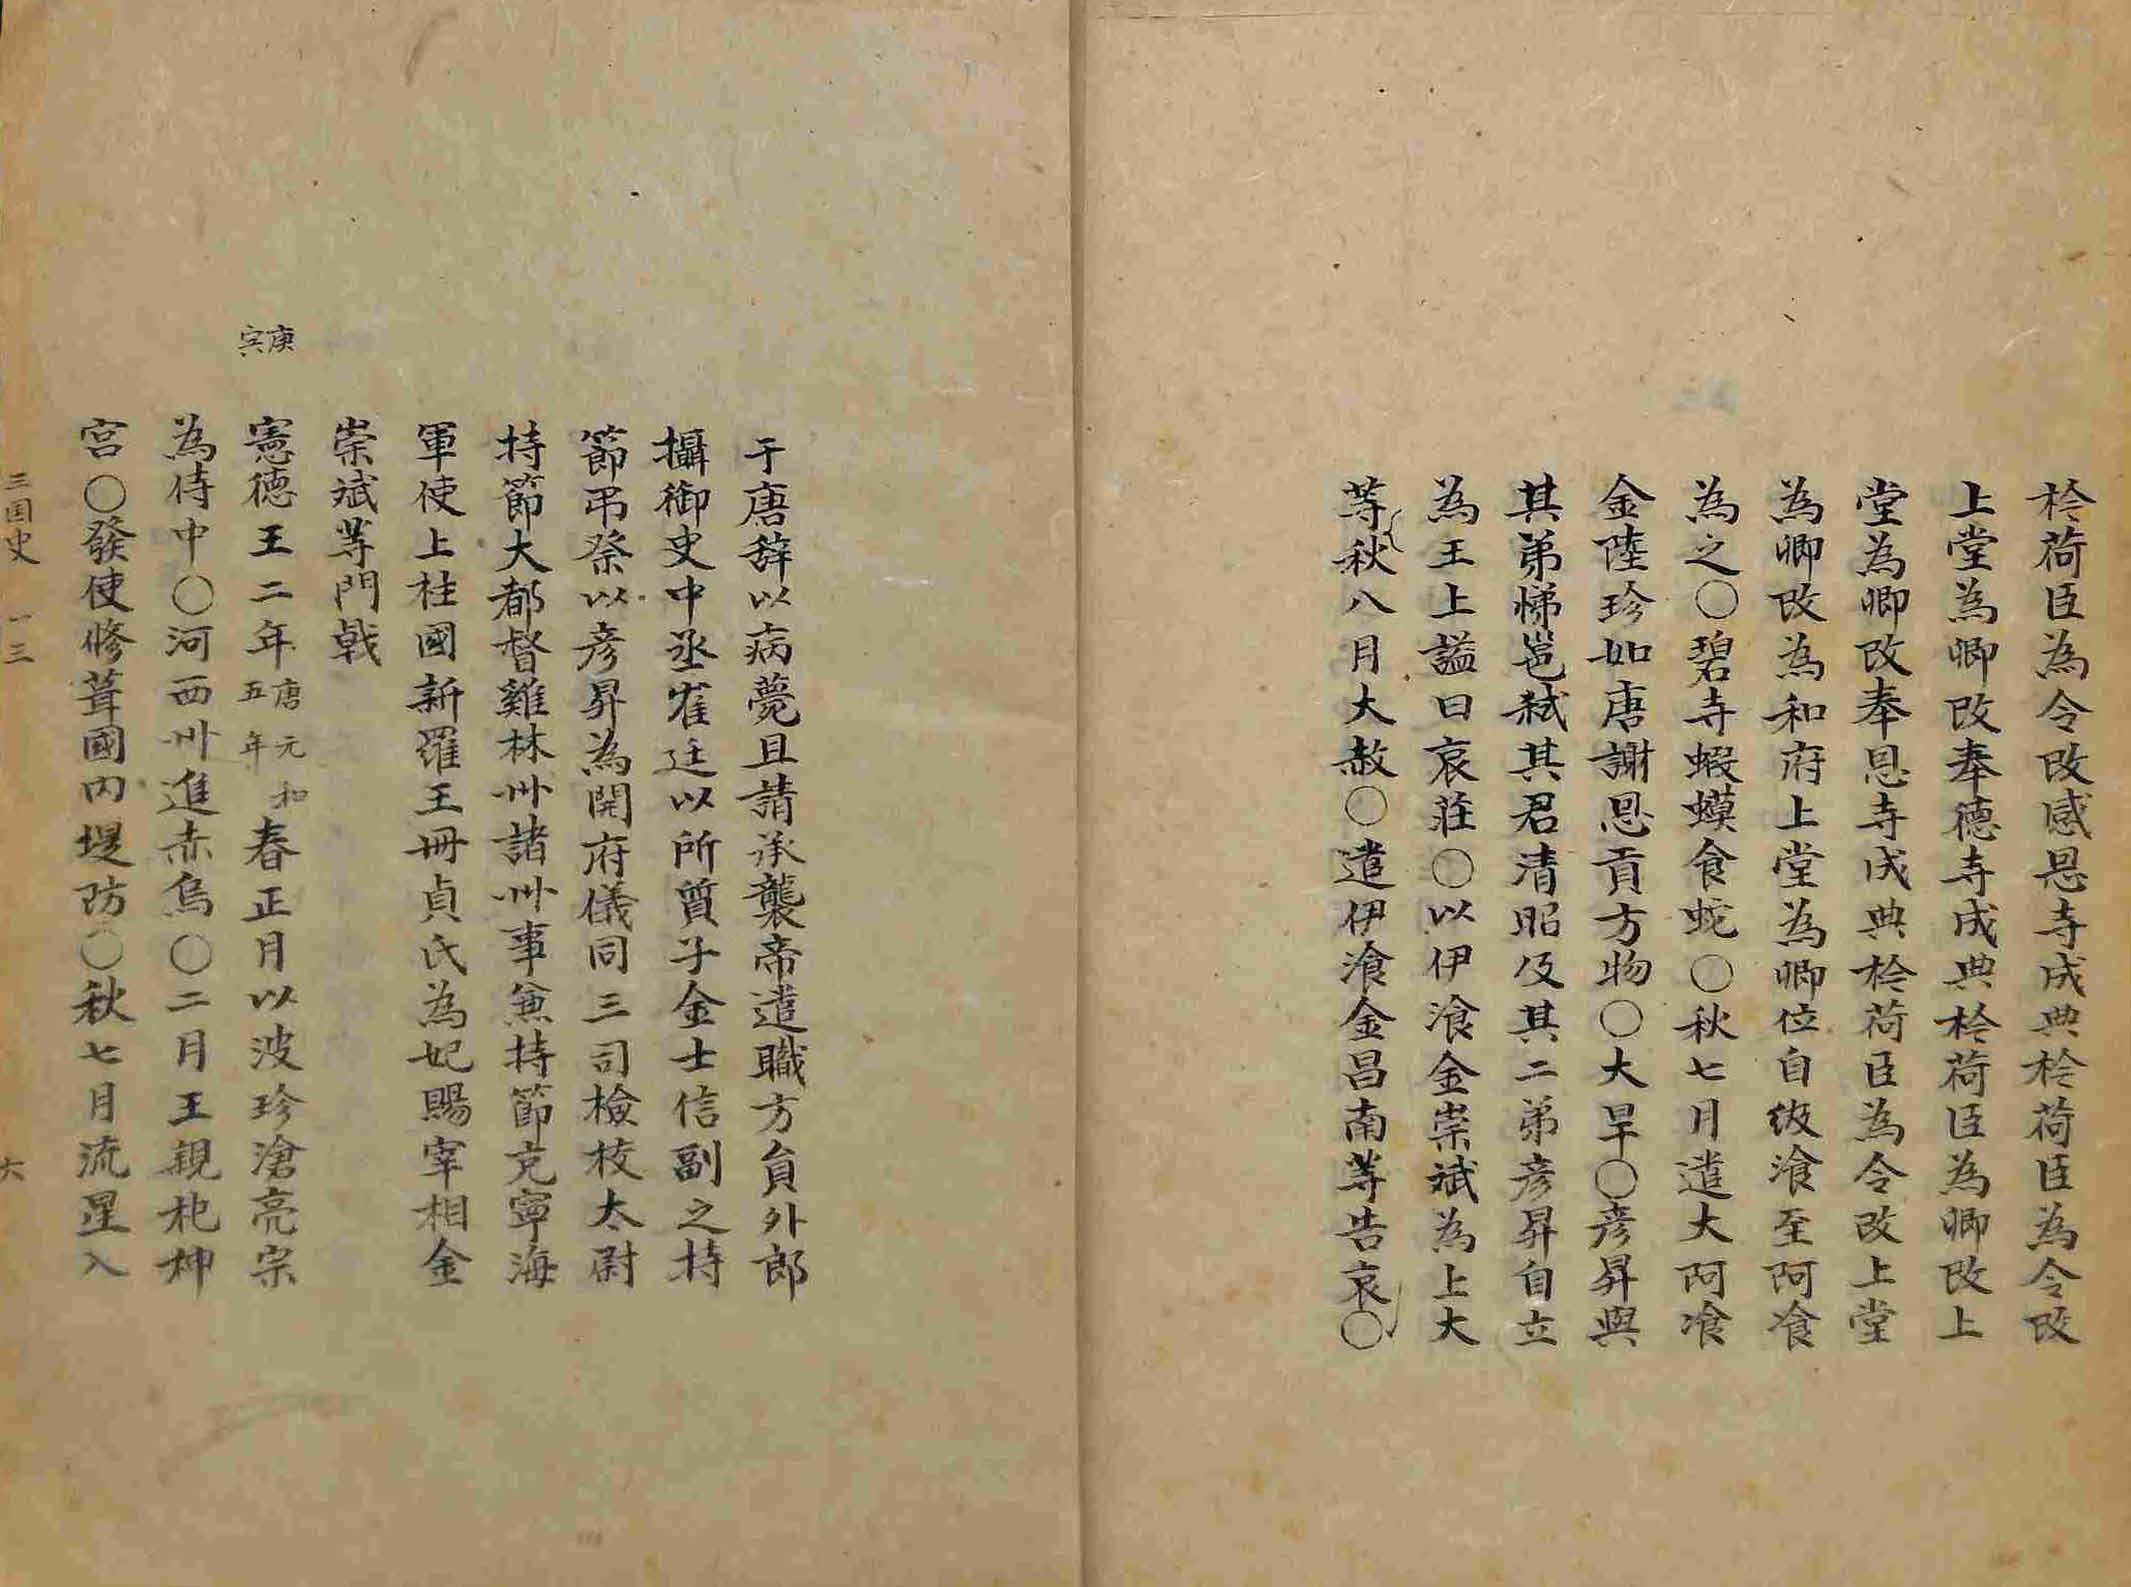 柃荷臣為令改感恩寺成典柃荷臣為令改
上堂為卿改奉德寺成典柃荷臣為卿改上
堂為卿改奉恩寺成典柃荷臣為令改上堂
為卿改為和府上堂為卿位自級飡至阿飡
為之〇碧寺蝦蟆食蛇〇秋七月遣大阿飡
金陸珍如唐謝恩貢方物〇大旱〇彦昇與
其弟悌邕弑其君清明及其二弟彦昇自立
為王上謚曰哀莊〇以伊飡金崇斌為上大
等秋八月大赦〇遣伊飡金昌南等告哀〇
于唐辞以病薨且請承襲帝遣職方負外郎
攝御史中丞崔廷以所質子金士信副之持
節弔祭以彦昇為開府儀同三司檢校太尉
持節大都督雞林州諸州事兼持節充寧海
軍使上柱國新羅王冊貞氏為妃賜宰相金
崇斌等門戟
庚寅
憲德王二年唐元和五年春正月以波珍滄亮宗
為侍中〇河西州進赤烏〇二月王親祀神
宮〇發使修葺國内堤防〇秋七月流星入
三国史 一三 六